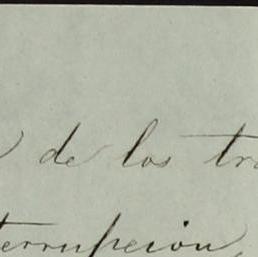 de los tra
terrupcion,